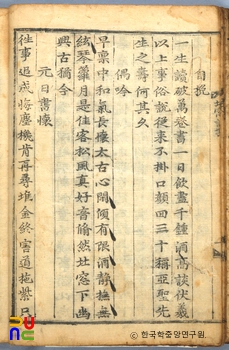 自挽
一生讀破萬卷書一日飮盡千鍾酒高談伏羲
以上事俗說從來不掛口顔回三十稱亞聖先
生之壽何其久
偶吟
早稟中和氣長懷太古心閒傾有限酒靜撫無
絃琴蘿月是佳客松風眞好音翛然灶窓下幽
興古猶今
元日書懷
往事追成悔塵機肯再尋堆金終害道拖紫只
한국학중앙연구원